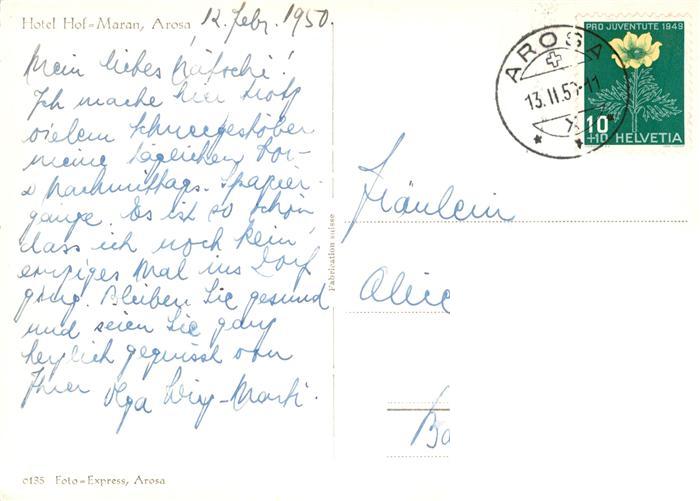 Hotel Hof=Maran, Arosa 12. Febr. 1950.
Mein liebes
Ich mache hier trotz
vielem Schneegestöber
meine täglichen Vor-
& Nachmittags-Spazier-
gänge. Es ist so schön
dass ich noch kein
einziges Mal ins Dorf
ging. Bleiben Sie gesund
und seien Sie ganz
herzlich gegrüsst von
Ihrer Olga
0135 Foto=Express, Arosa
Fabrication suisse
PRO JUVENTUTE 1949
AROSA
13.II.50-11
10
+10 HELVETIA
Fräulein
Alice